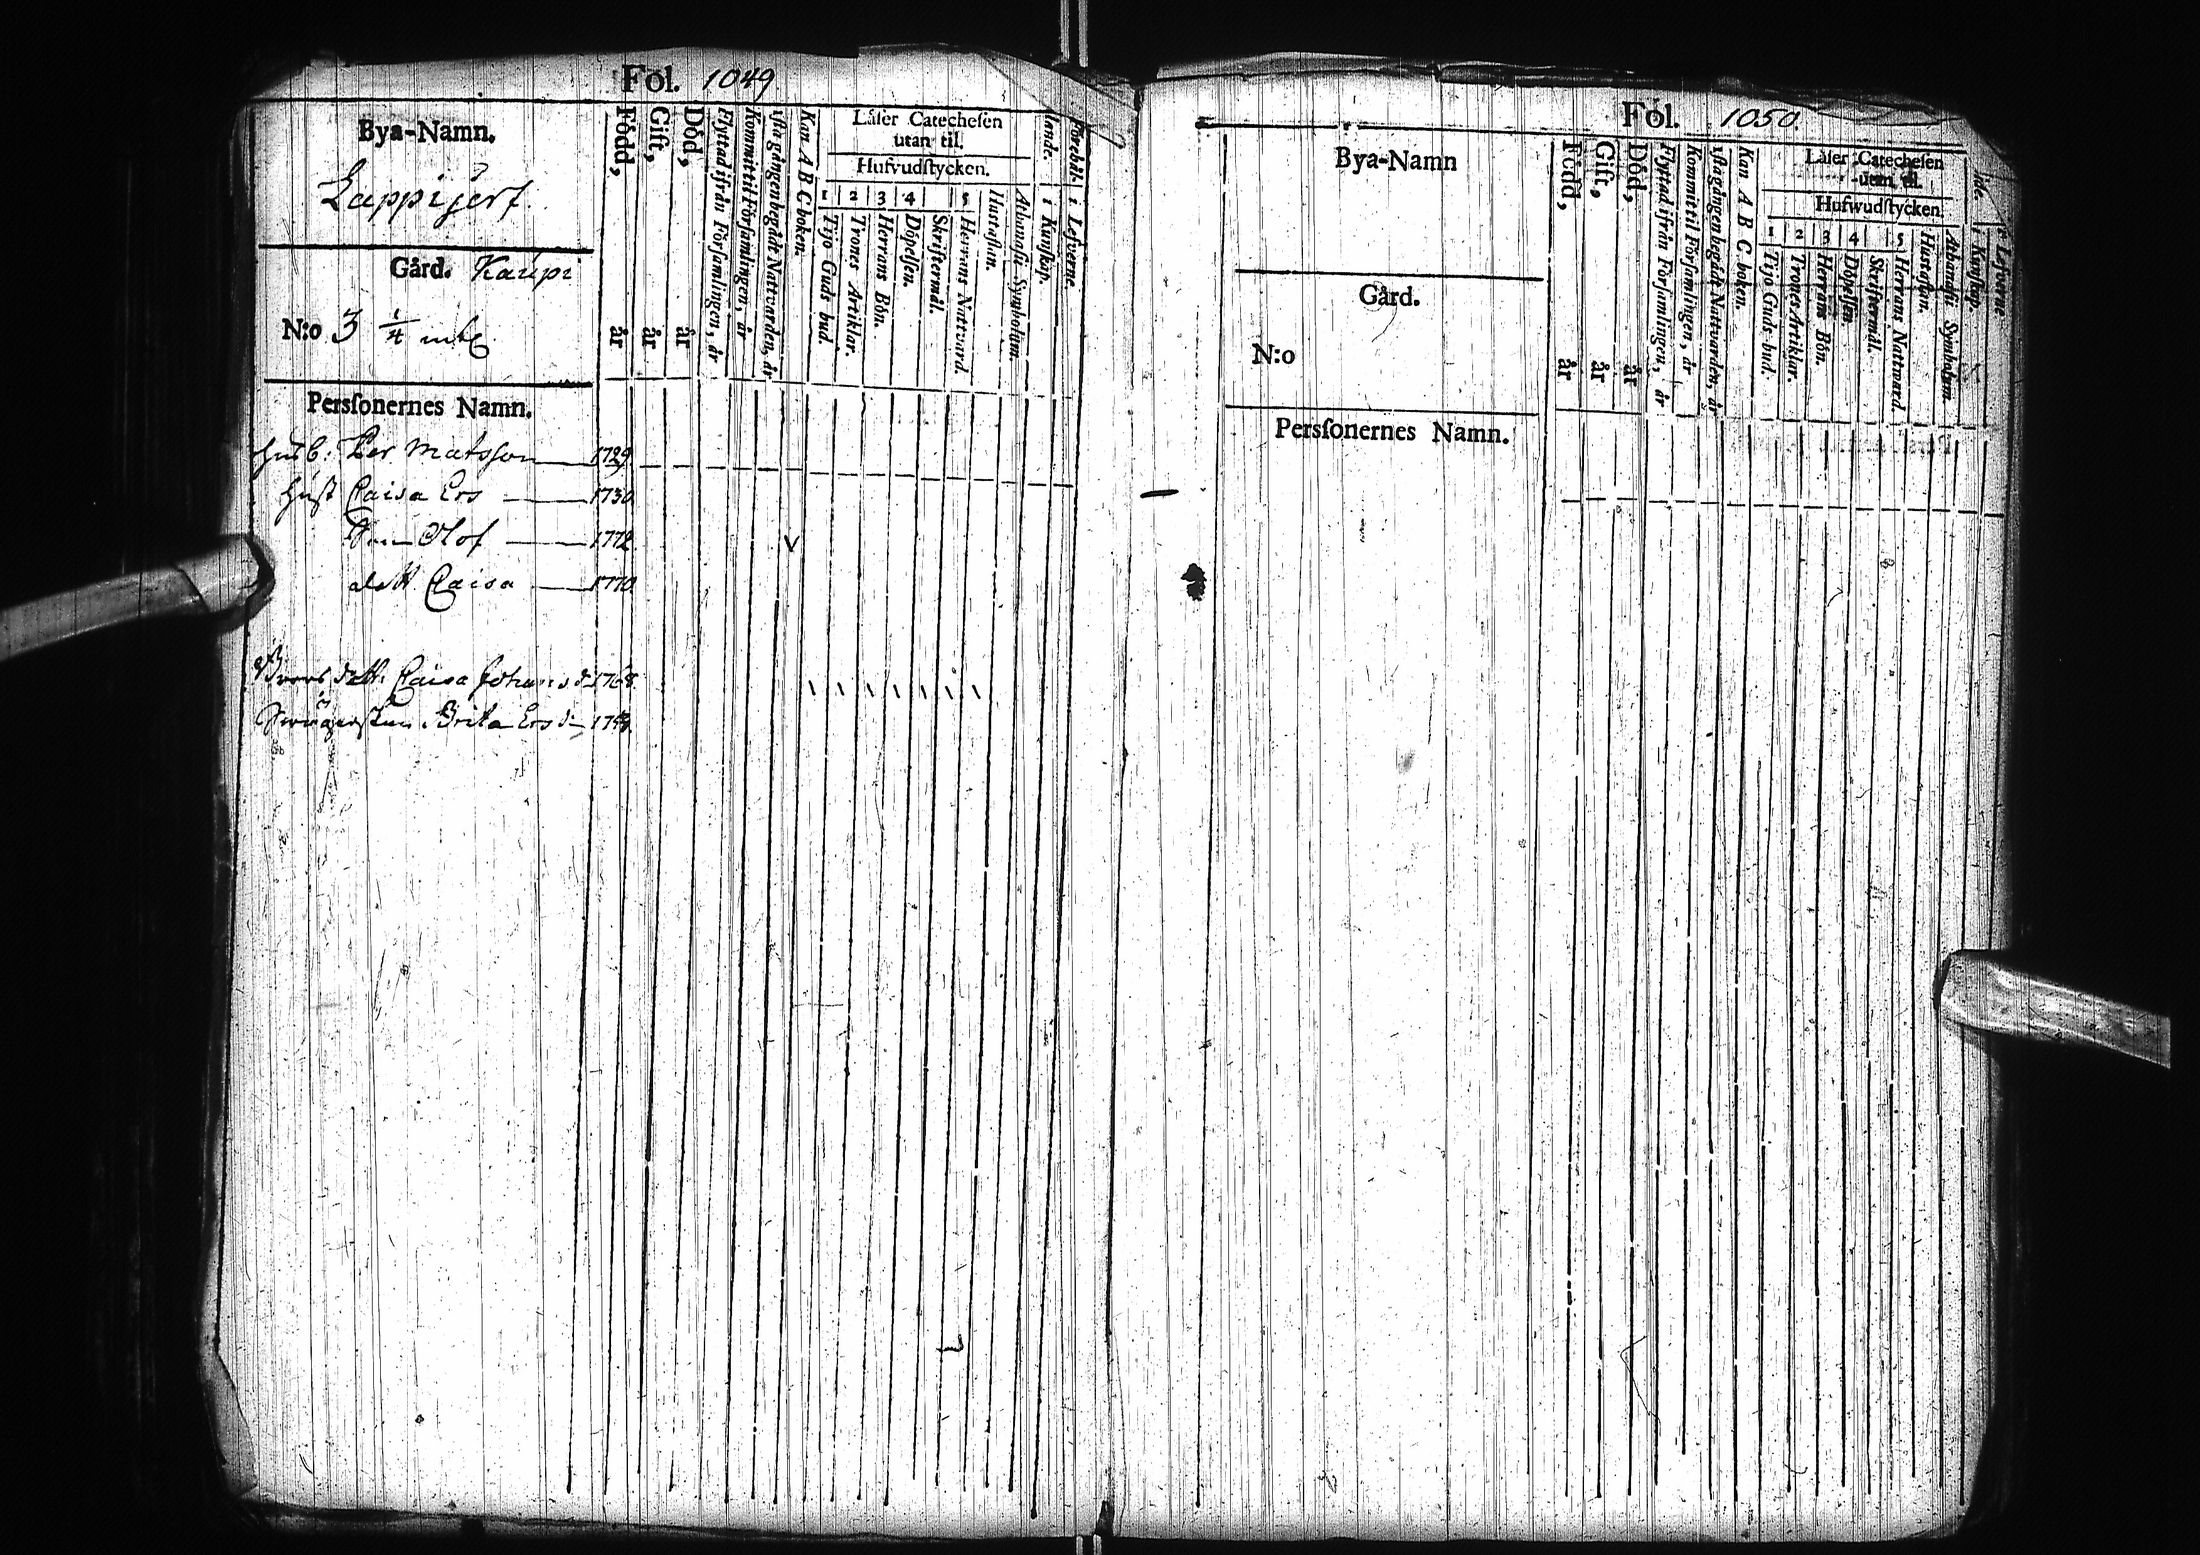 Fol. 1049
Bya-Namn.
Lappijerf.
Gård. Kaupi
N:o 3 1/4 mtl
Född, år
Gift, år
Död, år
Flyttad ifrån Församlingen, år
Kommit til Församlingen, år
1sta gången begådt Nattvarden, år
Kan A B C boken.
Läser Catechesen
utan til.
Hufvudstycken.
1 2 3 4 5
Tijo Guds bud.
Trones Artiklar.
Herrans Bön.
Döpelsen.
Skriftermål.
Herrans Nattvard.
Hustaflan.
Athanasii Symbolum.
Förehållande.
1 Kunskap.
1 Lefverne
Perssonernes Namn.
Husb: Per Matsson 1729
Hust Caisa Ers 1730
Son Olof 1772
dott Caisa 1770
Brors dott. Caisa Johans d: 1768
Swägerskan Brita Ers d:
Fol. 1050.
Bya-Namn
Gård.
N:o
Född, år
Gift, år
Död, år
Flyttad ifrån Församlingen, år
Kommit til Församlingen, år
1sta gången begådt Nattvarden, år
Kan A B C boken.
Läser Catechesen
utan til.
Hufwudstycken.
1 2 3 4 5
Tijo Guds bud.
Trones Artiklar.
Herrans Bön.
Döpelsen.
Skriftermål.
Herrans Nattward.
Hustaflan.
Athanasii Symbolum.
Kunskap.
Lefverne
Perssonernes Namn.